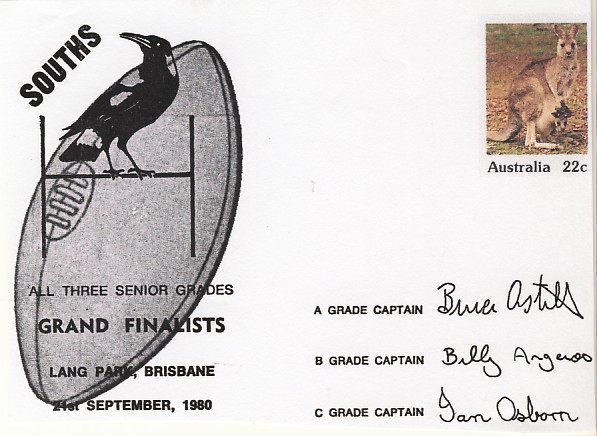 SOUTHS
Australia 22c
ALL THREE SENIOR GRADES
GRAND FINALISTS
LANG PARK, BRISBANE
21st SEPTEMBER, 1980
A GRADE CAPTAIN Bruce Astill
B GRADE CAPTAIN Billy
C GRADE CAPTAIN Ian Osborn